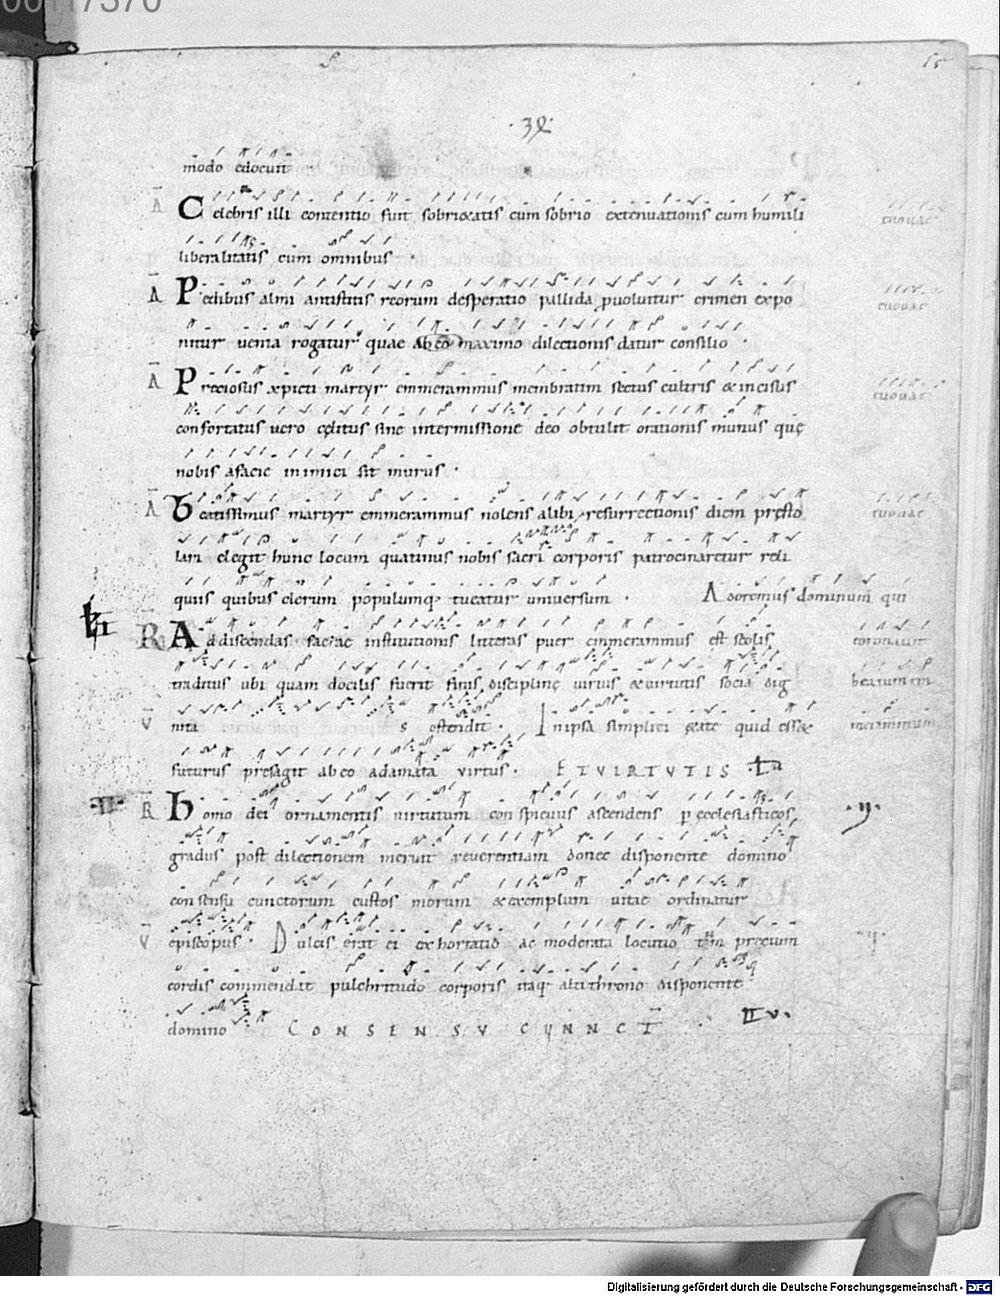 00117370
15
modo edocuit
A Celebris illi contentio fuit sobrietatis cum sobrio extenuationis cum humili euouae
liberalitatis cum omnibus
A Pedibus almi antistitis reorum desperatio pallida puoluitur crimen expo euouae
nitur uenia rogatur quae ab eo maximo dilectionis datur consilio
A Preciosus xpicti martyr emmerammus membratim sectus cultris & incisus euouae
confortatus uero cęlitus sine intermissione deo obtulit orationis munus quę
nobis afacie inimici sit murus
A Beatissimus martyr emmerammus nolens alibi resurrectionis diem pręsto euouae
lari elegit hunc locum quatinus nobis sacri corporis patrocinaretur reli
quiis quibus clerum populumq; tueatur uniuersum . Adoremus dominum qui
R Addiscendas sacrae institutionis litteras puer emmerammus est scolis coronauit
traditus ubi quam docilis fuerit finis disciplinę uirtus & uirtutis socia dig beatum em
V nita s ostendit . In ipsa simplici ętate quid ess& merammum
futurus pręsagit ab eo adamata virtus . ET VIRTUTIS
II R Homo dei ornamentis uirtutum conspicuus ascendens p ecclesiasticos
gradus post dilectionem meruit reuerentiam donec disponente domino
consensu cunctorum custos morum & exemplum uitae ordinatur
V episcopus . Dulcis erat ei exhortatio ac moderata locutio tum precum
cordis commendat pulchritudo corporis itaq; altithrono disponente
domino CONSENSV CUNNCT
Digitalisierung gefördert durch die Deutsche Forschungsgemeinschaft - DFG